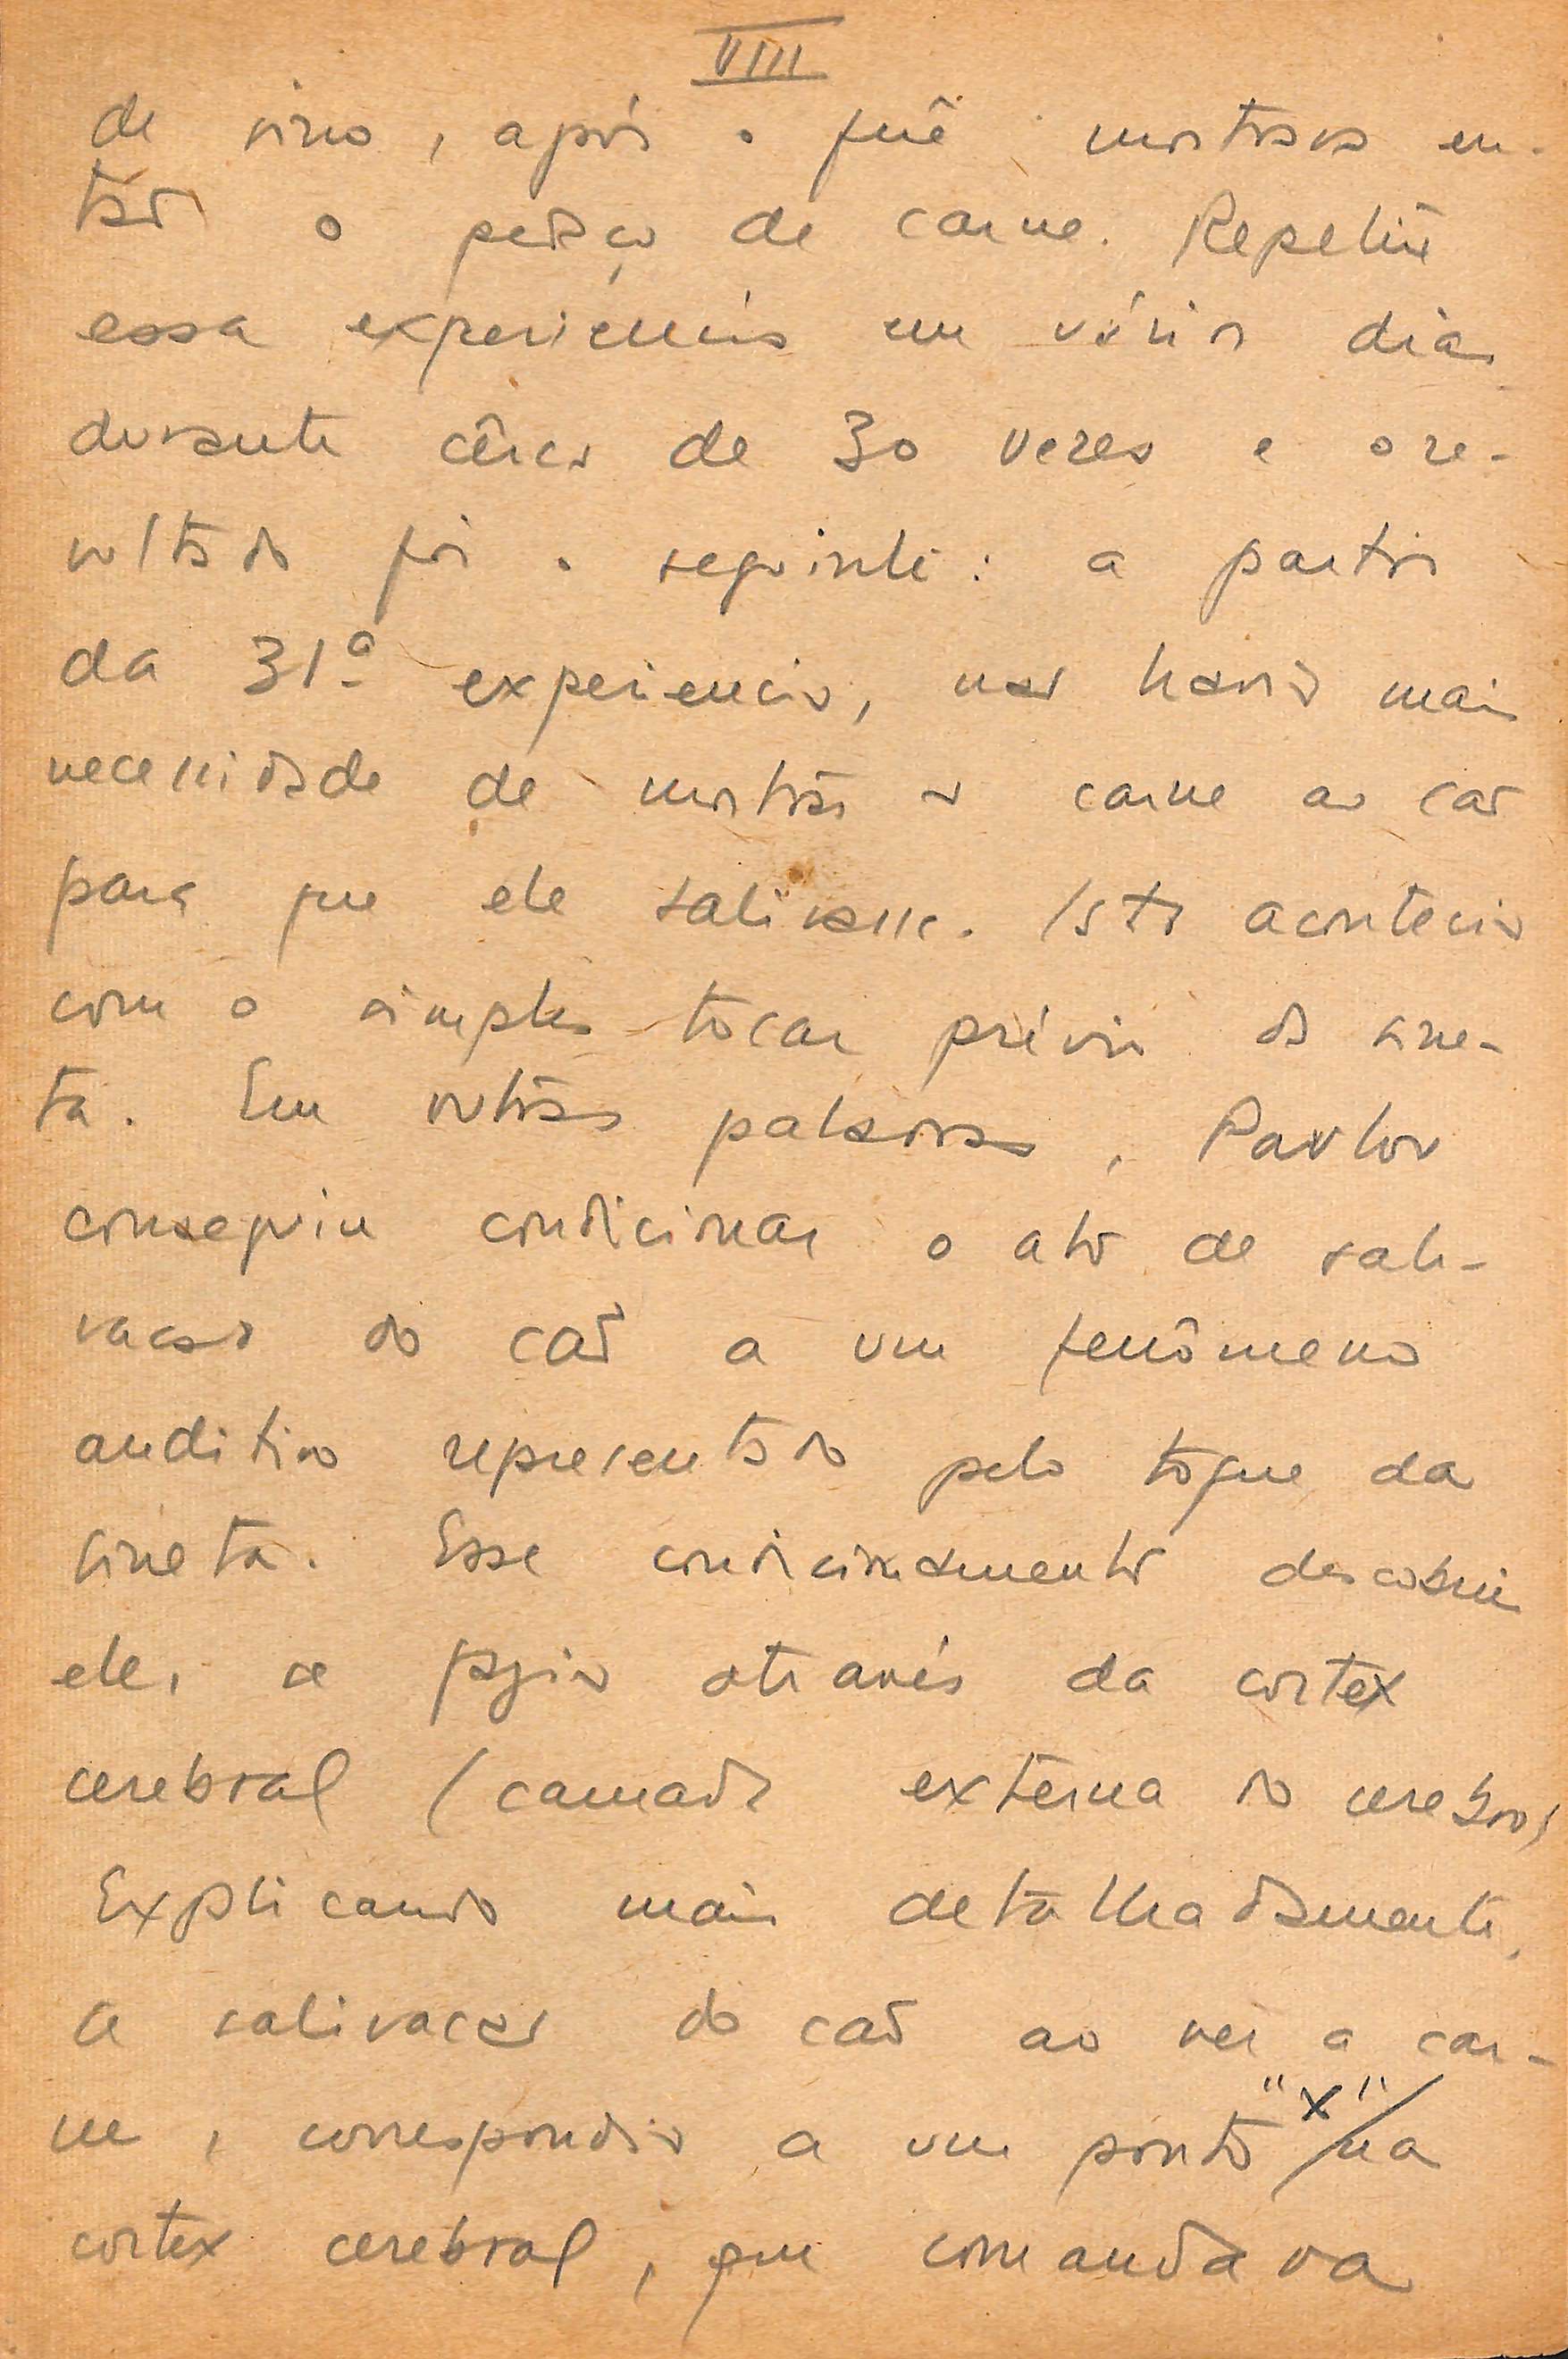 VIII
de sino, após o quê mostrava en-
tão o pedaço de carne. Repetiu
essa experiência em vários dias
durante cêrca de 30 vezes e o re-
sultado foi o seguinte: a partir
da 31ª experiencia, não havia mais
necessidade de mostrar a carne ao cão
para que ele salivasse. Isto acontecia
com o simples tocar prévio da sine-
ta. Em outras palavras, Pavlov
conseguiu condicionar o ato de sali-
vacão do cão a um fenômeno
auditivo representado pelo toque da
sineta. Esse condicionamento descobriu
ele, se fazia através da cortex
cerebral (camada externa do cerebro)
Explicando mais detalhadamente,
a salivacão do cão ao ver a car-
ne, correspondia a um ponto "X" na
cortex cerebral, que comandava